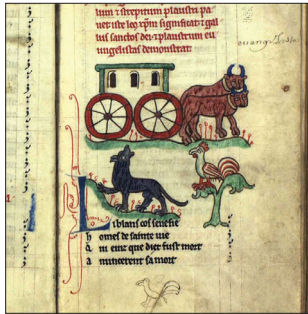 tum ⁊ strepitum plaustri pa
uet iste leo xp̄m significat: gal
lus sanctos dei: plaustrum eu
uangelistas demonstrat:
Li blans cos senefie
h omes de sainte uie
Q ui einz que diex fust mort
a nuncerent sa mort